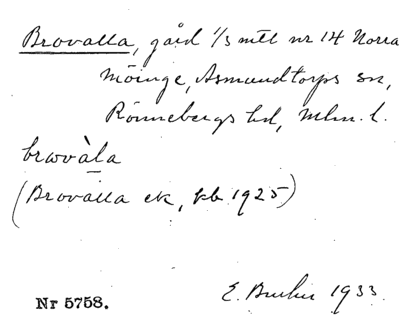 Brovalla, gård 1/3 mtl nr 14 Norra
Möinge, Asmundtorps sn,
Rönnebergs hd, Mlm. l.
brωvàla
(Brovalla ek, kb 1925)
Nr 5758.
E. 1933